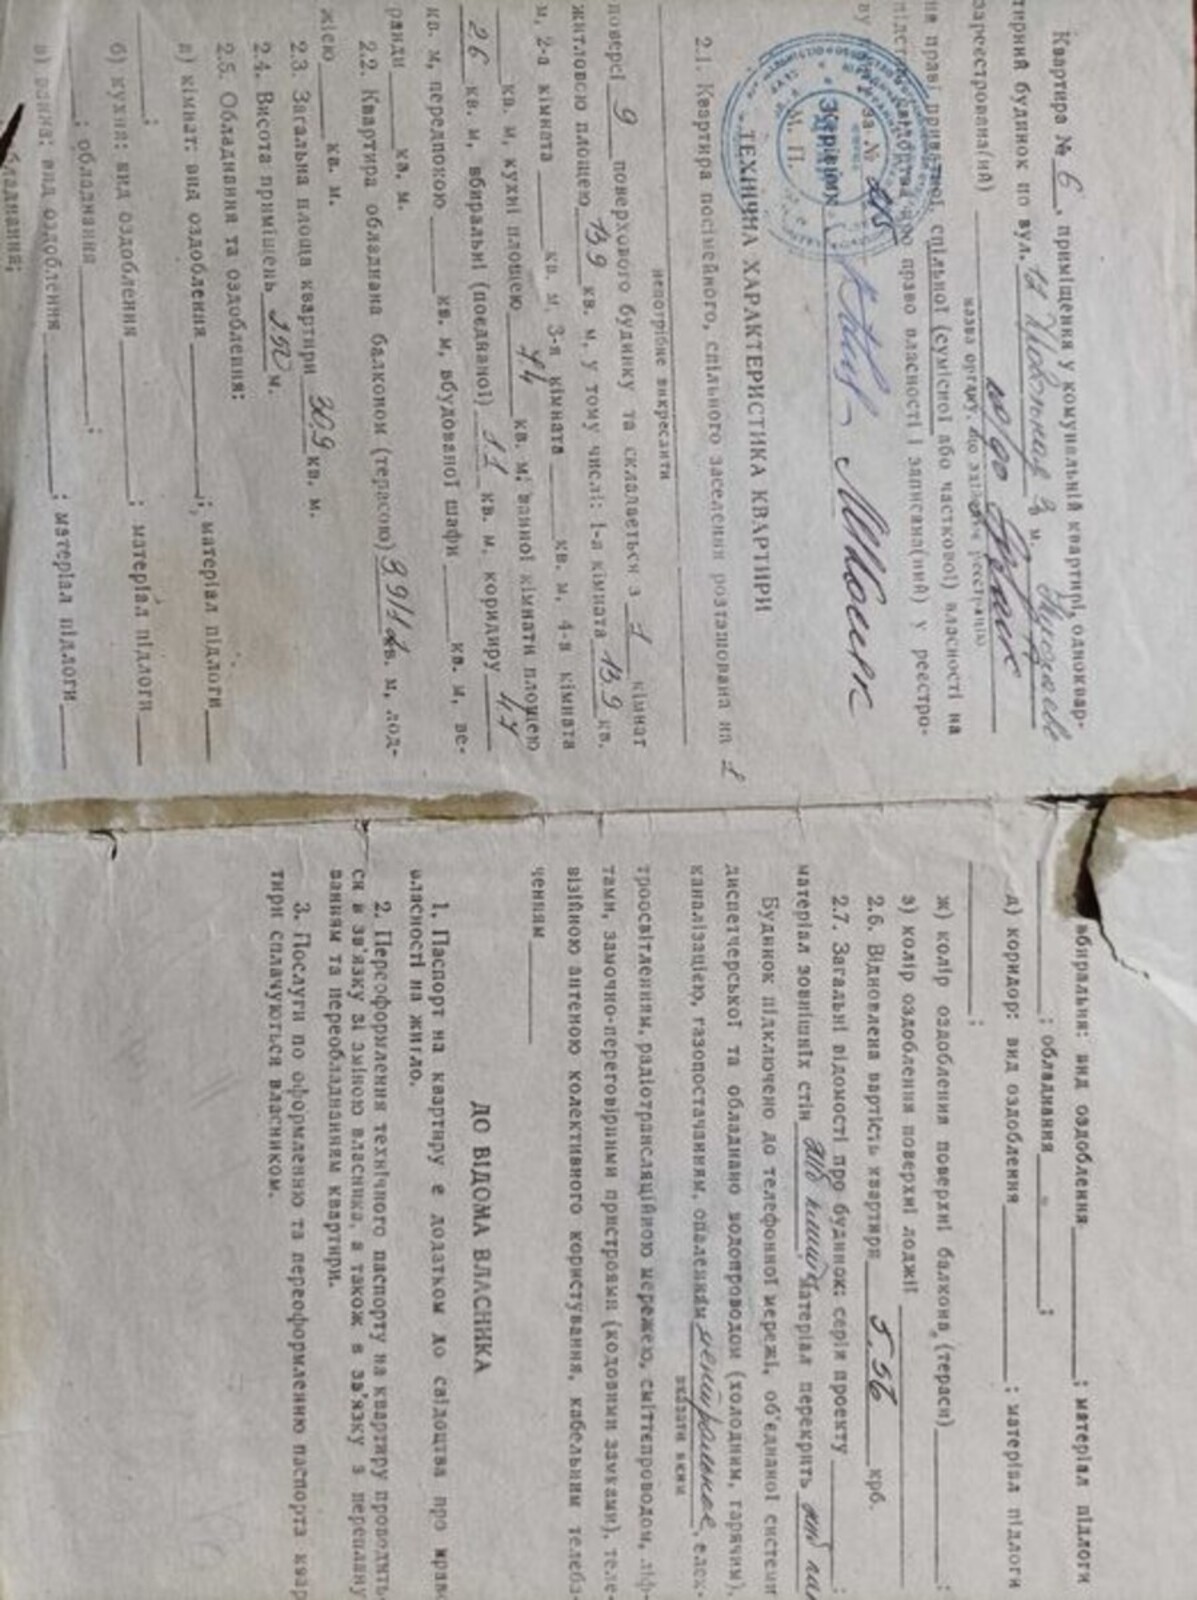 Квартира № 6, приміщення у комунальній квартирі, одноквар-
тирний будинок по вул. м.
зареєстрована(ний)
назва органу, що здійснює реєстрацію
на праві приватної, спільної (сумісної або часткової) власності на
підставі свідоцтва про право власності і записана(ний) у реєстро-
ву за №
Керівник
М. П.
ТЕХНІЧНА ХАРАКТЕРИСТИКА КВАРТИРИ
2.1. Квартира посімейного, спільного заселення розташована на 2
непотрібне викреслити
поверсі 9 поверхового будинку та складається з 1 кімнат
житловою площею 13,9 кв. м, у тому числі: 1-а кімната 13,9 кв.
м, 2-а кімната кв. м, 3-я кімната кв. м, 4-я кімната
кв. м, кухні площею 7,4 кв. м; ванної кімнати площею
2,6 кв. м, вбиральні (поєднаної) 1,1 кв. м, коридору 4,7
кв. м, передпокою кв. м, вбудованої шафи кв. м, ве-
ранди кв. м.
2.2. Квартира обладнана балконом (терасою) кв. м, лод-
жією кв. м.
2.3. Загальна площа квартири 30,9 кв. м.
2.4. Висота приміщень 2,50 м.
2.5. Обладнання та оздоблення:
а) кімнат: вид оздоблення ; матеріал підлоги
;
б) кухня: вид оздоблення ; матеріал підлоги
; обладнання ;
в) ванна: вид оздоблення ; матеріал підлоги
обладнання;
вбиральня: вид оздоблення ; матеріал підлоги
; обладнання ;
д) коридор: вид оздоблення ; матеріал підлоги
;
ж) колір оздоблення поверхні балкона (тераси) ;
з) колір оздоблення поверхні лоджії
2.6. Відновлена вартість квартири 5,56 крб.
2.7. Загальні відомості про будинок: серія проекту ;
матеріал зовнішніх стін матеріал перекрить
Будинок підключено до телефонної мережі, об'єднаної системи
диспетчерської та обладнано водопроводом (холодним, гарячим),
каналізацією, газопостачанням, опаленням центральное, елек-
вказати яким
троосвітленням, радіотрансляційною мережею, сміттєпроводом, ліф-
тами, замочно-переговірними пристроями (кодовими замками), теле-
візійною антеною колективного користування, кабельним телеба-
ченням
ДО ВІДОМА ВЛАСНИКА
1. Паспорт на квартиру є додатком до свідоцтва про право
власності на житло.
2. Переоформлення технічного паспорту на квартиру проводить-
ся в зв'язку зі зміною власника, а також в зв'язку з переплану
ванням та переобладнанням квартири.
3. Послуги по оформленню та переоформленню паспорта квар
тири сплачуються власником.